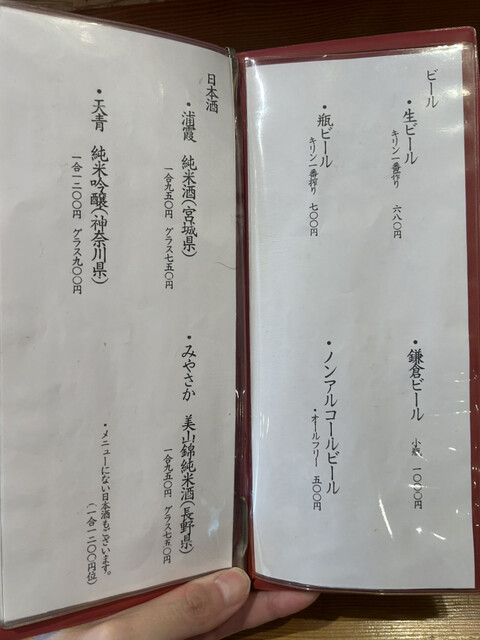 ビール
・生ビール
キリン一番搾り 六八〇円
・鎌倉ビール 小瓶 一〇〇〇円
・瓶ビール
キリン一番搾り 七〇〇円
・ノンアルコールビール
・オールフリー 五〇〇円
日本酒
・浦霞 純米酒(宮城県)
一合九五〇円 グラス七五〇円
・みやさか 美山錦純米酒(長野県)
一合九五〇円 グラス七五〇円
・天青 純米吟醸(神奈川県)
一合一二〇〇円 グラス九〇〇円
・メニューにない日本酒もございます。
(一合一二〇〇円位)